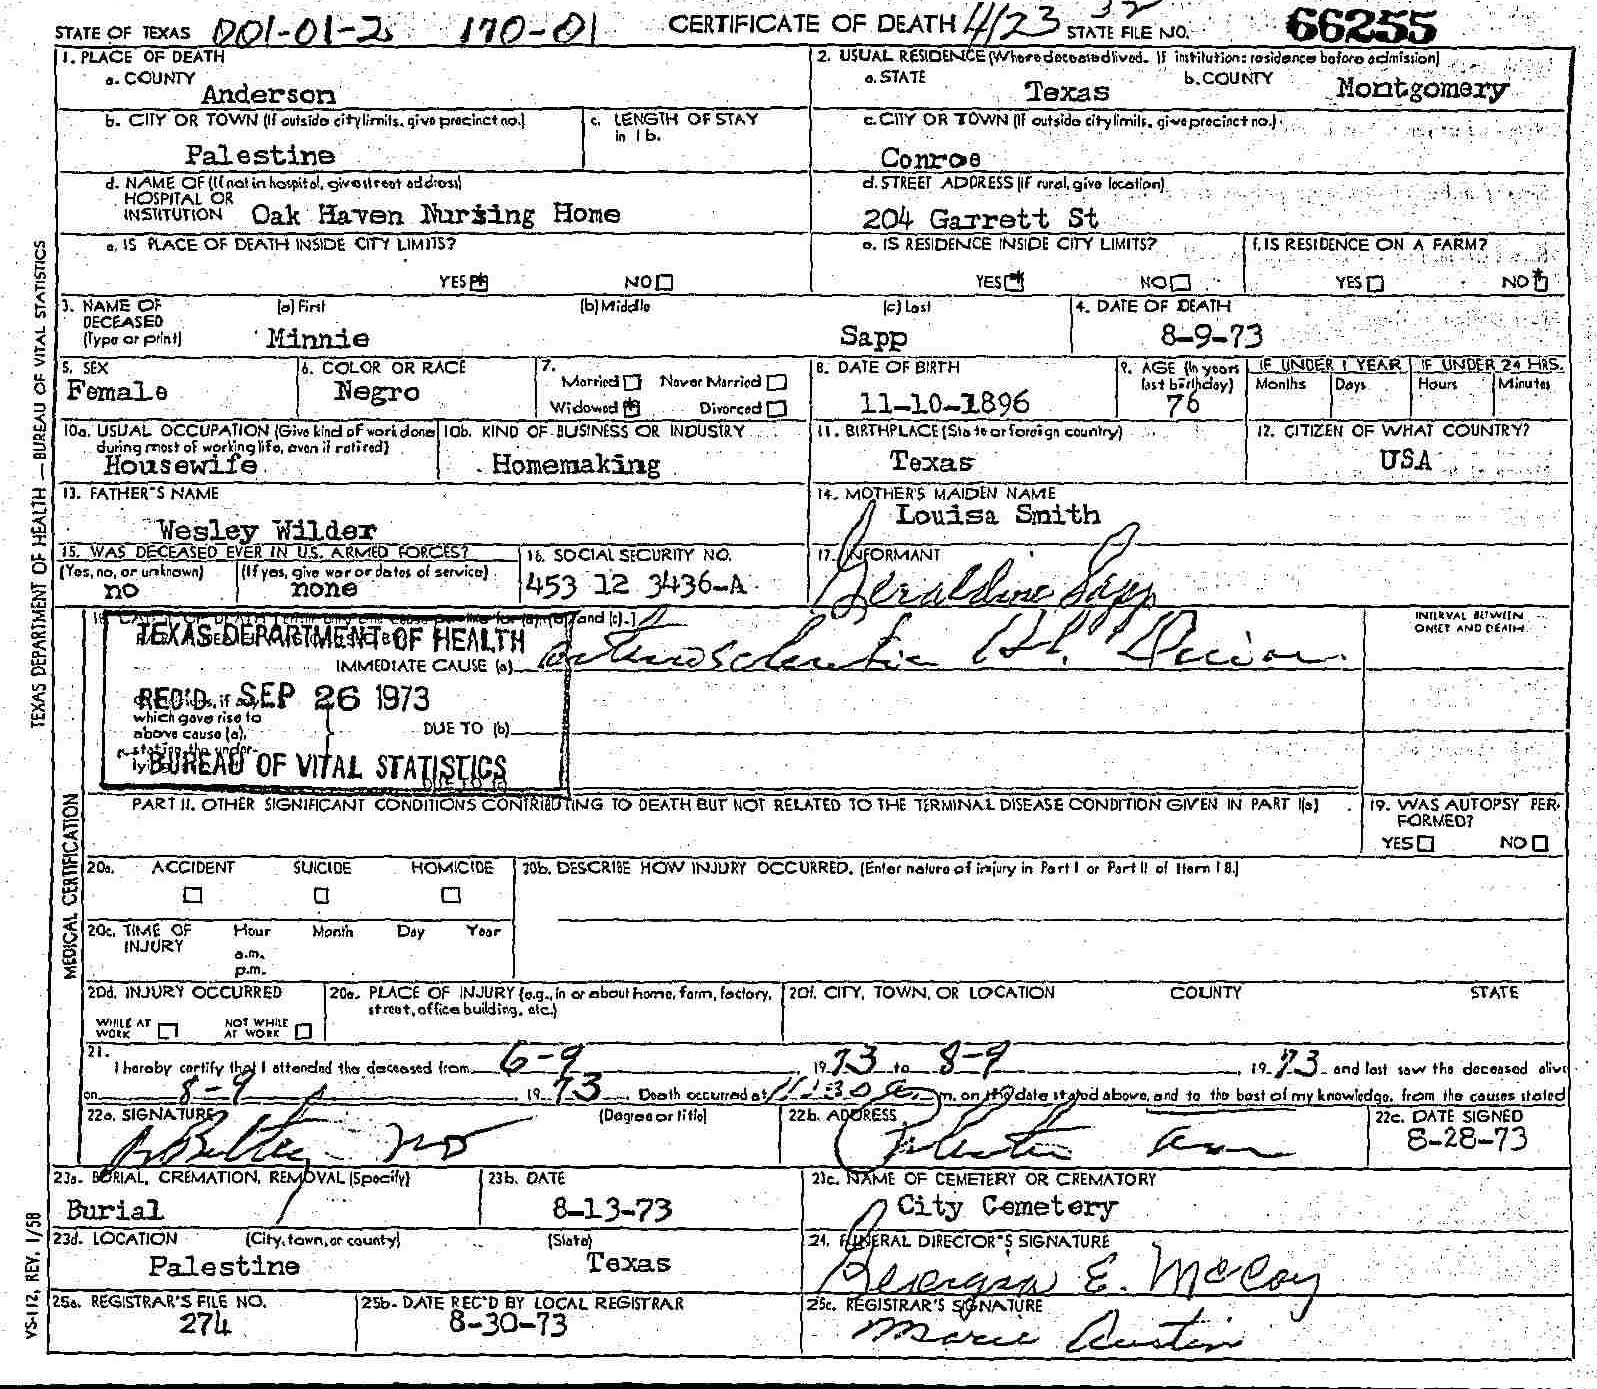 STATE OF TEXAS 001-01-2 170-01 CERTIFICATE OF DEATH 4/23 32 STATE FILE NO. 66255
1. PLACE OF DEATH
a. COUNTY
Anderson
2. USUAL RESIDENCE (Where deceased lived. If institution: residence before admission)
a. STATE
Texas
b. COUNTY
Montgomery
b. CITY OR TOWN (If outside city limits, give precinct no.)
Palestine
c. LENGTH OF STAY
in 1b.
c. CITY OR TOWN (If outside city limits, give precinct no.)
Conroe
d. NAME OF (If not in hospital, give street address)
HOSPITAL OR
INSTITUTION Oak Haven Nursing Home
d. STREET ADDRESS (If rural, give location)
204 Garrett St
e. IS PLACE OF DEATH INSIDE CITY LIMITS?
YES NO
e. IS RESIDENCE INSIDE CITY LIMITS?
YES NO
f. IS RESIDENCE ON A FARM?
YES NO
3. NAME OF
DECEASED
(Type or print)
(a) First
Minnie
(b) Middle
(c) Last
Sapp
4. DATE OF DEATH
8-9-73
5. SEX
Female
6. COLOR OR RACE
Negro
7.
Married Never Married
Widowed Divorced
8. DATE OF BIRTH
11-10-1896
9. AGE (In years
last birthday)
76
IF UNDER 1 YEAR
Months Days
IF UNDER 24 HRS.
Hours Minutes
10a. USUAL OCCUPATION (Give kind of work done
during most of working life, even if retired)
Housewife
10b. KIND OF BUSINESS OR INDUSTRY
Homemaking
11. BIRTHPLACE (State or foreign country)
Texas
12. CITIZEN OF WHAT COUNTRY?
USA
13. FATHER'S NAME
Wesley Wilder
14. MOTHER'S MAIDEN NAME
Louisa Smith
15. WAS DECEASED EVER IN U.S. ARMED FORCES?
(Yes, no, or unknown) (If yes, give war or dates of service)
no none
16. SOCIAL SECURITY NO.
453 12 3436-A
17. INFORMANT
Geraldine Sapp
for (a), (b), and (c).]
TEXAS DEPARTMENT OF HEALTH
REC'D. SEP 26 1973
BUREAU OF VITAL STATISTICS
IMMEDIATE CAUSE (a)
which gave rise to
above cause (a),
stating the under-
DUE TO (b)
INTERVAL BETWEEN
ONSET AND DEATH
PART II. OTHER SIGNIFICANT CONDITIONS CONTRIBUTING TO DEATH BUT NOT RELATED TO THE TERMINAL DISEASE CONDITION GIVEN IN PART I(a)
19. WAS AUTOPSY PER-
FORMED?
YES NO
20a. ACCIDENT SUICIDE HOMICIDE
20b. DESCRIBE HOW INJURY OCCURRED. (Enter nature of injury in Part I or Part II of Item 18.)
20c. TIME OF
INJURY
Hour Month Day Year
a.m.
p.m.
20d. INJURY OCCURRED
WHILE AT
WORK
NOT WHILE
AT WORK
20e. PLACE OF INJURY (e.g., in or about home, farm, factory,
street, office building, etc.)
20f. CITY, TOWN, OR LOCATION COUNTY STATE
21.
I hereby certify that I attended the deceased from 6-9, 1973 to 8-9, 1973 and last saw the deceased alive
on 8-9 1973. Death occurred at 11:30 a m. on the date stated above, and to the best of my knowledge, from the causes stated
22a. SIGNATURE (Degree or title)
MD
22b. ADDRESS
Palestine Texas
22c. DATE SIGNED
8-28-73
23a. BURIAL, CREMATION, REMOVAL (Specify)
Burial
23b. DATE
8-13-73
23c. NAME OF CEMETERY OR CREMATORY
City Cemetery
23d. LOCATION (City, town, or county) (State)
Palestine Texas
24. FUNERAL DIRECTOR'S SIGNATURE
Georgia E. McCoy
25a. REGISTRAR'S FILE NO.
274
25b. DATE REC'D BY LOCAL REGISTRAR
8-30-73
25c. REGISTRAR'S SIGNATURE
Marie Austin
TEXAS DEPARTMENT OF HEALTH — BUREAU OF VITAL STATISTICS
MEDICAL CERTIFICATION
VS-112, REV. 1/58